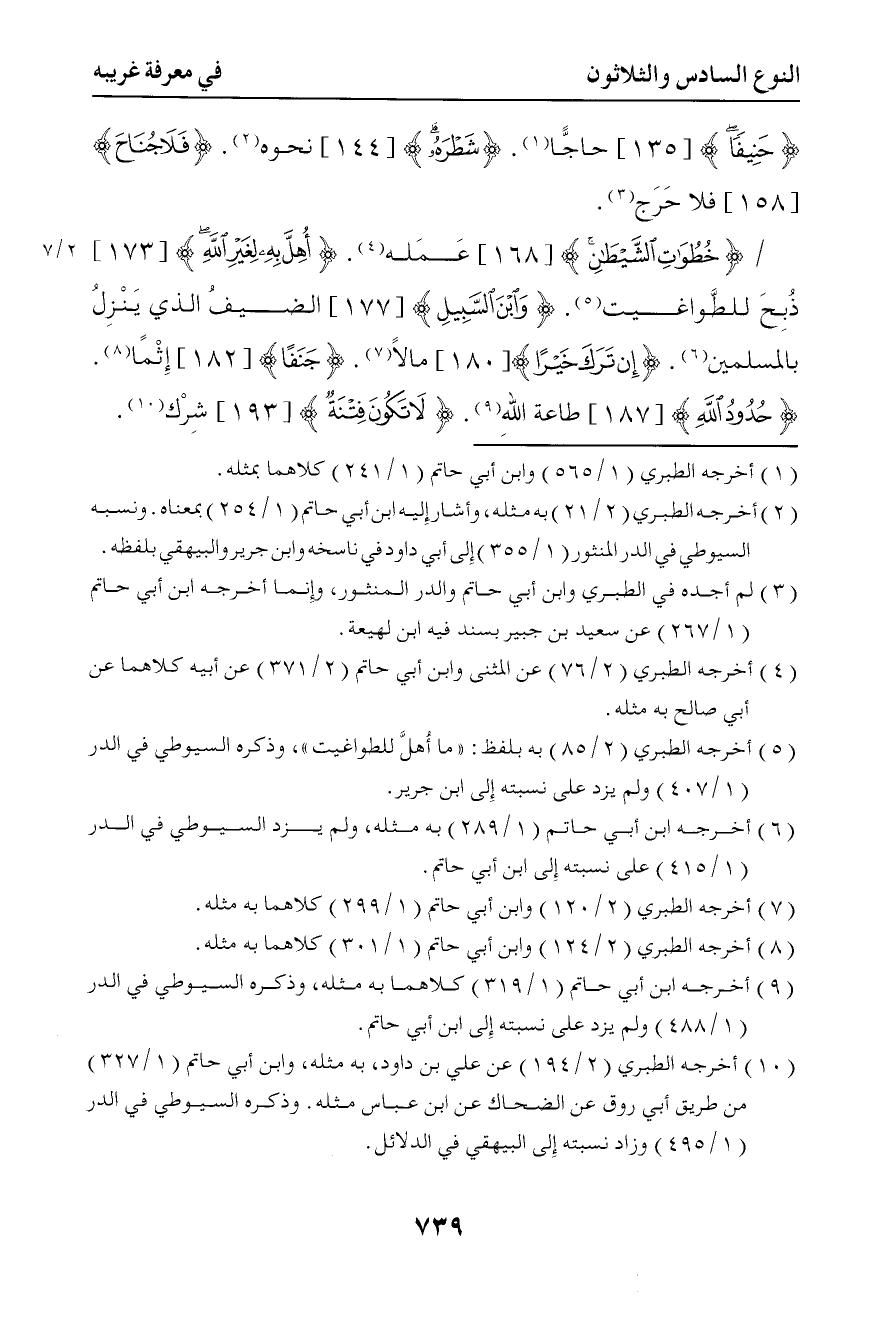 النوع السادس والثلاثون في معرفة غريبه
﴿ حَنِيفًاۖ ﴾ [ ١٣٥ ] حاجًّا(١) . ﴿ شَطْرَهُۥۗ ﴾ [ ١٤٤ ] نحوه(٢) . ﴿ فَلَاجُنَاحَ ﴾
[ ١٥٨ ] فلا حَرَج(٣) .
/ ﴿ خُطُوَٰتِ ٱلشَّيْطَٰنِۚ ﴾ [ ١٦٨ ] عَمَله(٤) . ﴿ أُهِلَّ بِهِۦ لِغَيْرِ ٱللَّهِۖ ﴾ [ ١٧٣ ] ٧/٢
ذُبِحَ للطَّواغيت(٥) . ﴿ وَٱبْنَ ٱلسَّبِيلِ ﴾ [ ١٧٧ ] الضيفُ الذي يَنْزِلُ
بالمسلمين(٦) . ﴿ إِن تَرَكَ خَيْرًا ﴾[ ١٨٠ ] مالاً(٧) . ﴿ جَنَفًا ﴾ [ ١٨٢ ] إِثْمًا(٨) .
﴿ حُدُودُ ٱللَّهِ ﴾ [ ١٨٧ ] طاعة اللهِ(٩) . ﴿ لَا تَكُونَ فِتْنَةٌ ﴾ [ ١٩٣ ] شِرْك(١٠) .
( ١ ) أخرجه الطبري ( ١/ ٥٦٥ ) وابن أبي حاتم ( ١/ ٢٤١ ) كلاهما بمثله .
( ٢ ) أخرجه الطبري ( ٢/ ٢١ ) به مثله ، وأشار إليه ابن أبي حاتم ( ١/ ٢٥٤ ) بمعناه . ونسبه
السيوطي في الدر المنثور ( ١/ ٣٥٥ ) إلى أبي داود في ناسخه وابن جرير والبيهقي بلفظه .
( ٣ ) لم أجده في الطبري وابن أبي حاتم والدر المنثور ، وإنما أخرجه ابن أبي حاتم
( ١/ ٢٦٧ ) عن سعيد بن جبير بسند فيه ابن لهيعة .
( ٤ ) أخرجه الطبري ( ٢/ ٧٦ ) عن المثنى وابن أبي حاتم ( ٢/ ٣٧١ ) عن أبيه كلاهما عن
أبي صالح به مثله .
( ٥ ) أخرجه الطبري ( ٢/ ٨٥ ) به بلفظ : « ما أُهلَّ للطواغيت » ، وذكره السيوطي في الدر
( ١/ ٤٠٧ ) ولم يزد على نسبته إلى ابن جرير .
( ٦ ) أخرجه ابن أبي حاتم ( ١/ ٢٨٩ ) به مثله ، ولم يزد السيوطي في الدر
( ١/ ٤١٥ ) على نسبته إلى ابن أبي حاتم .
( ٧ ) أخرجه الطبري ( ٢/ ١٢٠ ) وابن أبي حاتم ( ١/ ٢٩٩ ) كلاهما به مثله .
( ٨ ) أخرجه الطبري ( ٢/ ١٢٤ ) وابن أبي حاتم ( ١/ ٣٠١ ) كلاهما به مثله .
( ٩ ) أخرجه ابن أبي حاتم ( ١/ ٣١٩ ) كلاهما به مثله ، وذكره السيوطي في الدر
( ١/ ٤٨٨ ) ولم يزد على نسبته إلى ابن أبي حاتم .
( ١٠ ) أخرجه الطبري ( ٢/ ١٩٤ ) عن علي بن داود ، به مثله ، وابن أبي حاتم ( ١/ ٣٢٧ )
من طريق أبي روق عن الضحاك عن ابن عباس مثله . وذكره السيوطي في الدر
( ١/ ٤٩٥ ) وزاد نسبته إلى البيهقي في الدلائل .
٧٣٩